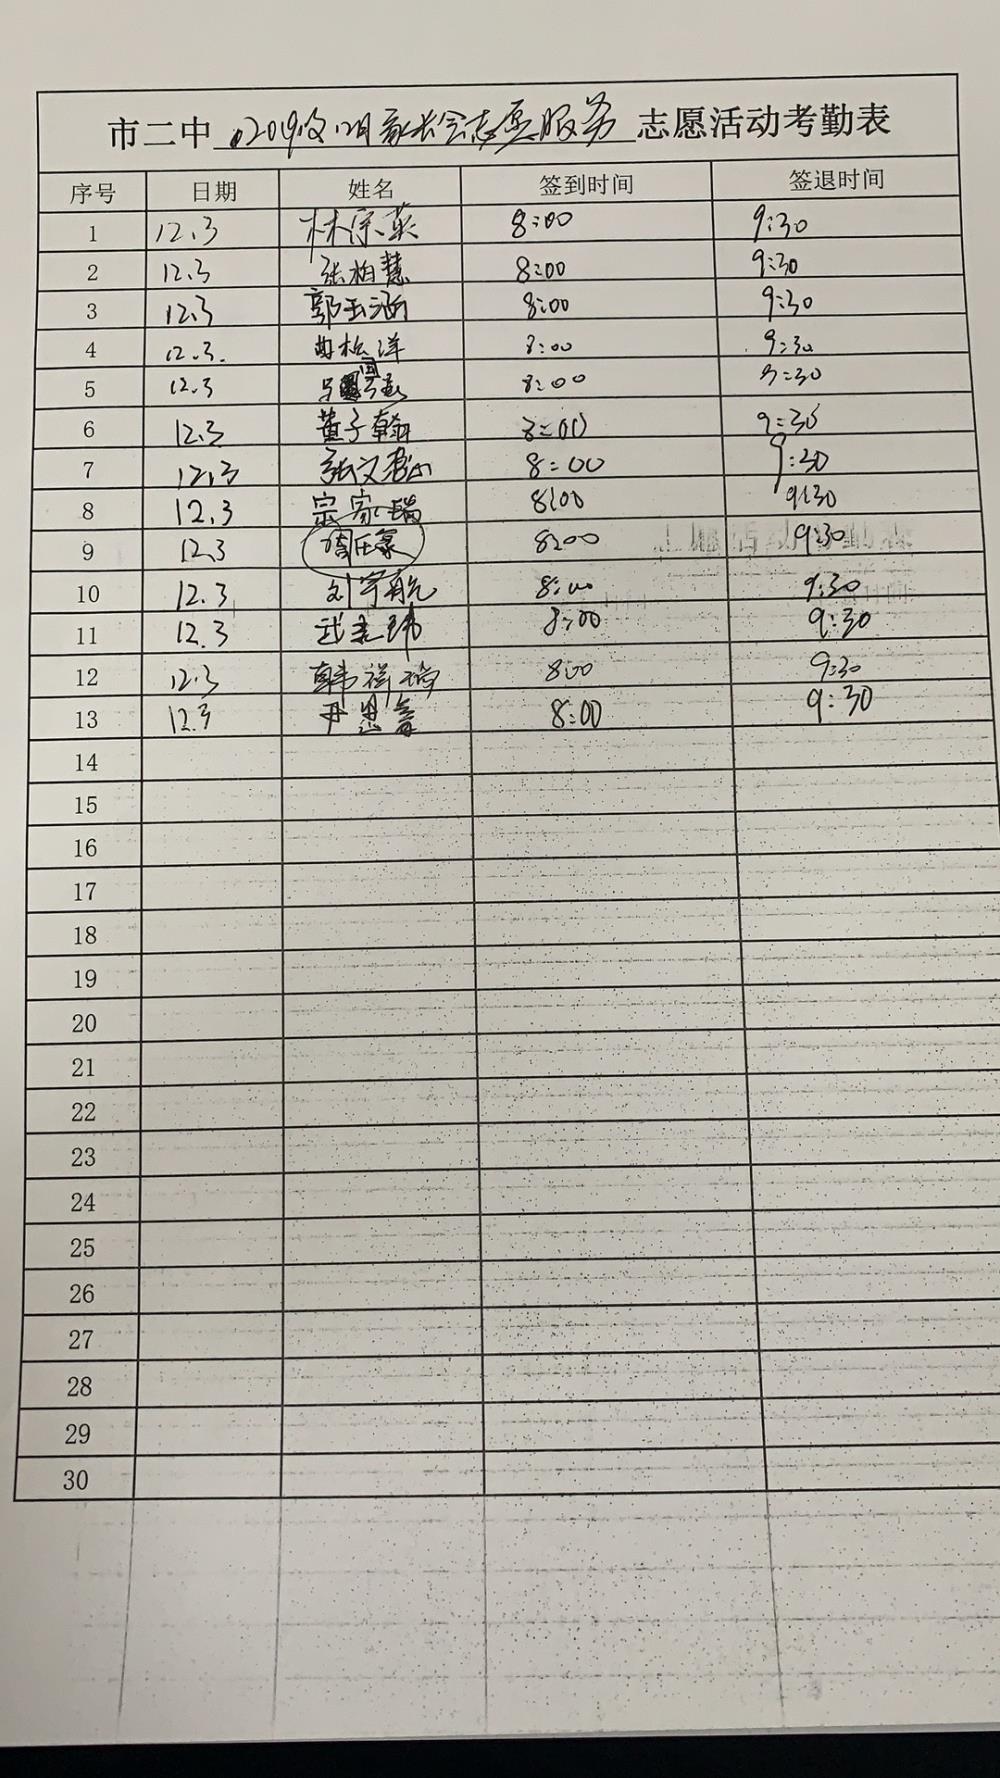 市二中 2019级12月家长会志愿服务 志愿活动考勤表
序号 日期 姓名 签到时间 签退时间
1 12.3 林宗英 8:00 9:30
2 12.3 张柏慧 8:00 9:30
3 12.3 郭玉涵 8:00 9:30
4 12.3. 曲松洋 8:00 9:30
5 12.3 8:00 9:30
6 12.3 董子翰 8:00 9:30
7 12.3 张文 8:00 9:30
8 12.3 宗家瑞 8:00 9:30
9 12.3 8:00 9:30
10 12.3 刘宇航 8:00 9:30
11 12.3 武 8:00 9:30
12 12.3 韩祥 8:00 9:30
13 12.3 尹思 8:00 9:30
14
15
16
17
18
19
20
21
22
23
24
25
26
27
28
29
30